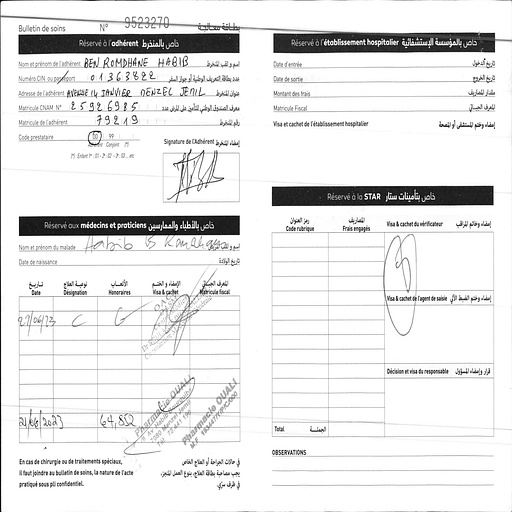 Bulletin de soins N° 9523270 بطاقة معالجة
Réservé à l'adhérent خاص بالمنخرط
Nom et prénom de l'adhérent BEN ROMDHANE HABIB إسم و لقب المنخرط
Numéro CIN ou passeport 01363822 عدد بطاقة التعريف الوطنية أو جواز السفر
Adresse de l'adhérent AVENUE 14 JANVIER MENZEL JEMIL عنوان المنخرط
Matricule CNAM N° 25926985 معرف الصندوق الوطني للتأمين على المرض عدد
Matricule de l'adhérent 79219 رقم المنخرط
Code prestataire 00 99 Signature de l'Adhérent إمضاء المنخرط
Adhérent Conjoint (*)
(*) Enfant 1er : 01 - 2e : 02 - 3e : 03 ... etc
Réservé aux médecins et praticiens خاص بالأطباء والممارسين
Nom et prénom du malade Habib B Romdhane إسم و لقب المريض
Date de naissance تاريخ الولادة
تاريخ نوعية العلاج الأتعاب الإمضاء و الختم المعرف الجبائي
Date Désignation Honoraires Visa & cachet Matricule fiscal
27/06/23 C G
21/06/2023 64,852
Pharmacie OUALI
Pharmacie OUALI
En cas de chirurgie ou de traitements spéciaux,
il faut joindre au bulletin de soins, la nature de l'acte
pratiqué sous pli confidentiel.
في حالات الجراحة أو العلاج الخاص
يجب مصاحبة بطاقة العلاج، بنوع العمل المنجز،
في ظرف سري.
Réservé à l'établissement hospitalier خاص بالمؤسسة الإستشفائية
Date d'entrée تاريخ الدخول
Date de sortie تاريخ الخروج
Montant des frais مقدار المصاريف
Matricule Fiscal المعرف الجبائي
Visa et cachet de l'établissement hospitalier إمضاء وختم المستشفى أو المصحة
Réservé à la STAR خاص بتأمينات ستار
رمز العنوان المصاريف
Code rubrique Frais engagés
Visa & cachet du vérificateur إمضاء وخاتم المراقب
Visa & cachet de l'agent de saisie إمضاء وختم الضبط الآلي
Décision et visa du responsable قرار وإمضاء المسؤول
Total الجملة
OBSERVATIONS